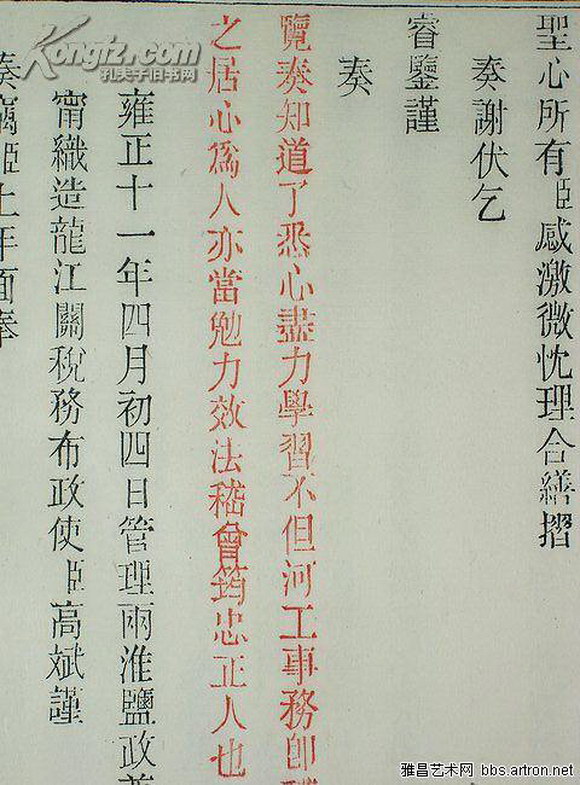 聖心所有臣感激微忱理合繕摺
奏謝伏乞
睿鑒謹
奏
覽奏知道了悉心盡力學習不但河工事務即
之居心為人亦當勉力效法嵇曾筠忠正人也
雍正十一年四月初四日管理兩淮鹽政
甯織造龍江關稅務布政使臣高斌謹
奏竊臣上年面奉
Kongfz.com
孔夫子旧书网
雅昌艺术网 bbs.artron.net